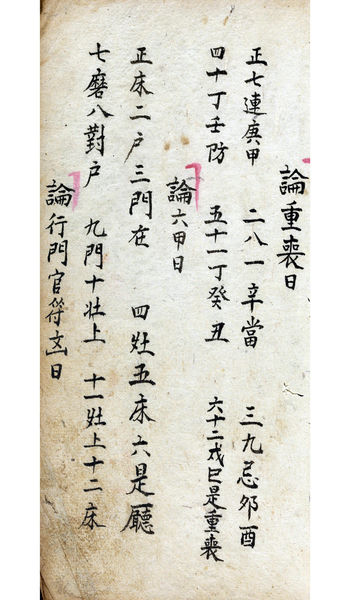 論重喪日
正七連庚甲 二八一辛當 三九忌夘酉
四十丁壬防 五十一丁癸丑 六十二戊巳是重喪
論六甲日
正床二户三門在 四灶五床六是廳
七磨八對户 九門十灶上 十一灶上十二床
論行門官符日